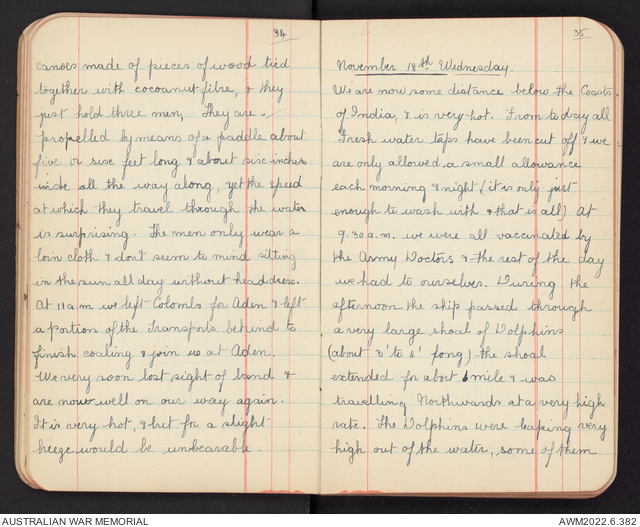 34
canoes made of pieces of wood tied
together with cocoanut fibre, & they
just hold three men, They are
propelled by means of a paddle about
five or sixe feet long & about sixe inches
wide all the way along, yet the speed
at which they travel through the water
is surprising. The men only wear a
loin cloth & don't seem to mind sitting
in the sun all day without headdress.
At 11 a.m we left Colombo for Aden & left
a portion of the Transports behind to
finish coaling & join us at Aden.
We very soon lost sight of land &
are now well on our way again.
It is very hot, & but for a slight
breeze would be unbearable.
35
November 18th Wednesday.
We are now some distance below the Coasts
of India, & is very hot. From to day all
Fresh water taps have been cut off & we
are only allowed a small allowance
each morning & night (it is only just
enough to wash with & that is all) At
9.30 a.m. we were all vaccinated by
the Army Doctors & the rest of the day
we had to ourselves. During the
afternoon the ship passed through
a very large shoal of Dolphins
(about 3' to 4' long) the shoal
extended for about 1 mile & was
travelling Northwards at a very high
rate. The Dolphins were leaping very
high out of the water, some of them
AUSTRALIAN WAR MEMORIAL
AWM2022.6.382